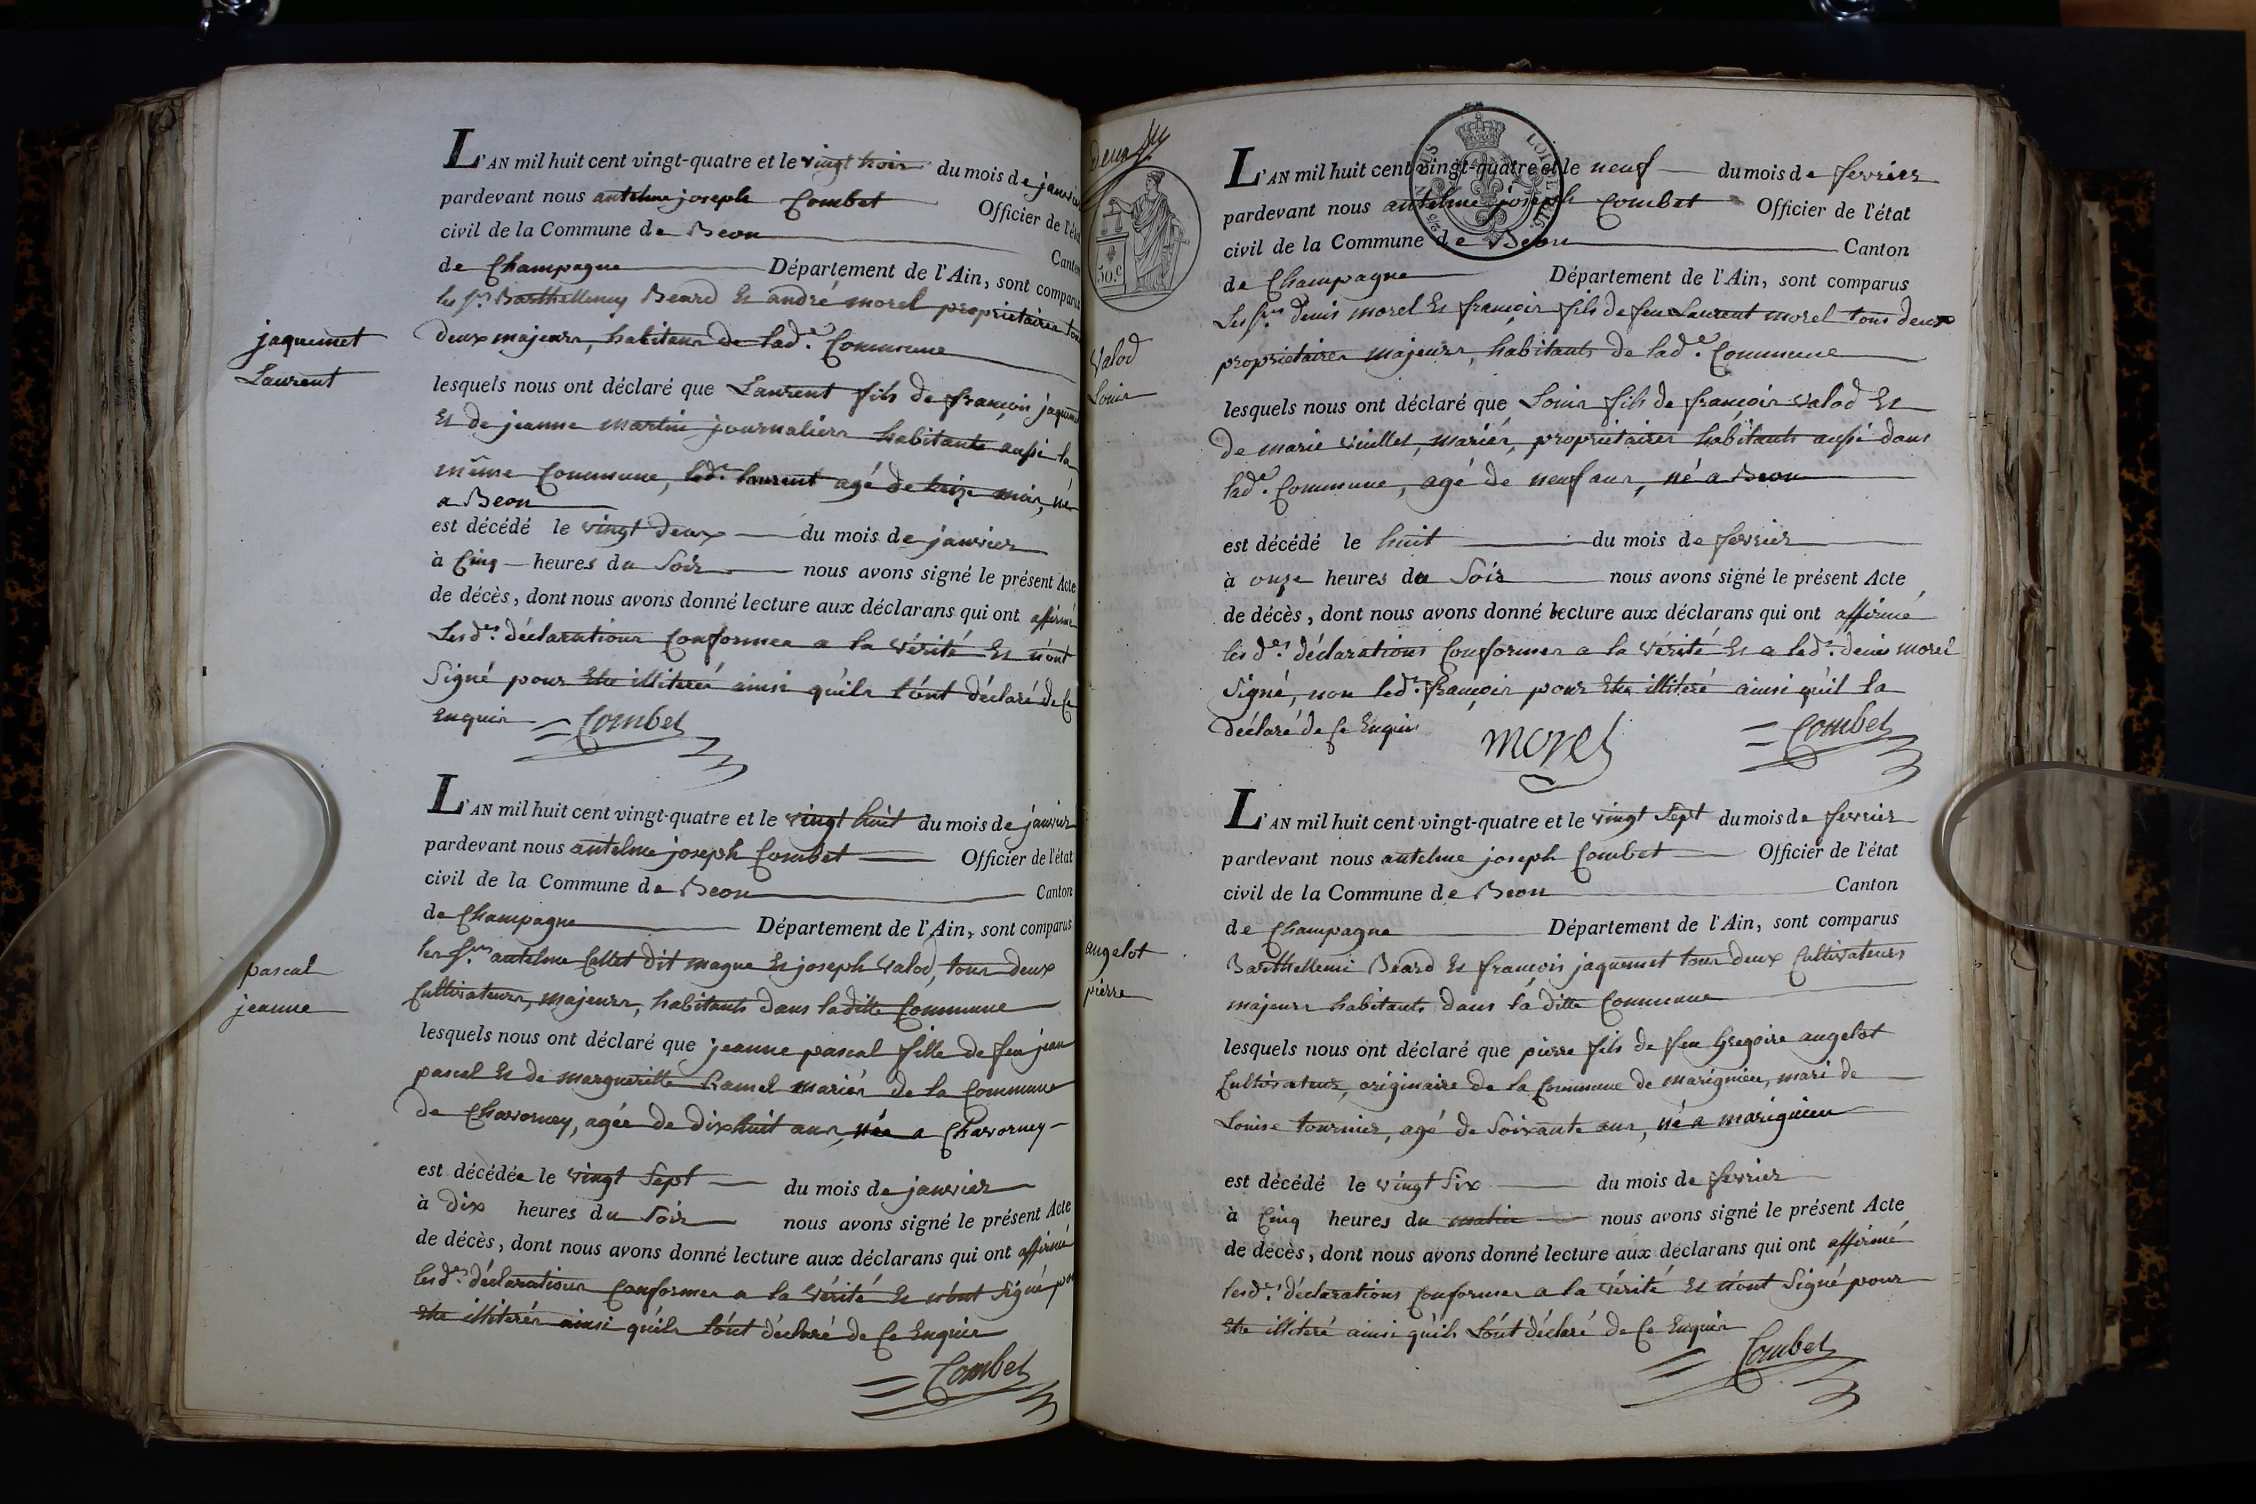 jaquemet
Laurent
L'AN mil huit cent vingt-quatre et le vingt trois du mois de janvier
pardevant nous antelme joseph Combet Officier de l'état
civil de la Commune de Beon Canton
de Champagne Département de l'Ain, sont comparus
les Srs Barthellemy Beard et andré morel proprietaires tous
deux majeurs, habitans de lade. Commune
lesquels nous ont déclaré que Laurent fils de françois jaquemet
Et de jeanne martin journaliers habitants aussi la
même Commune, led. laurent agé de treize mois, né
a Beon
est décédé le vingt deux du mois de janvier
à Cinq heures du Soir nous avons signé le présent Acte
de décès, dont nous avons donné lecture aux déclarans qui ont affirmé
Lesdes. déclarations Conformes a la vérité Et n'ont
Signé pour Etre illiterés ainsi qu'ils l'ont déclaré de Ce
Enquis Combet
pascal
jeanne
L'AN mil huit cent vingt-quatre et le vingt huit du mois de janvier
pardevant nous antelme joseph Combet Officier de l'état
civil de la Commune de Beon Canton
de Champagne Département de l'Ain, sont comparus
les Srs antelme Collet dit magne Et joseph Valod, tous deux
Cultivateurs, majeurs, habitants dans laditte Commune
lesquels nous ont déclaré que jeanne pascal fille de feu jean
pascal Et de margueritte Ramel mariés de la Commune
de Chavorney, agée de dixhuit ans, née a Chavorney
est décédée le vingt Sept du mois de janvier
à Dix heures du Soir nous avons signé le présent Acte
de décès, dont nous avons donné lecture aux déclarans qui ont affirmé
lesdes. déclarations Conformes a la vérité Et n'ont Signé pour
Etre illiterés ainsi qu'ils l'ont déclaré de Ce Enquis
Combet
deux
50 c
Valod
Louis
L'AN mil huit cent vingt-quatre et le neuf du mois de fevrier
pardevant nous antelme joseph Combet Officier de l'état
civil de la Commune de Beon Canton
de Champagne Département de l'Ain, sont comparus
Les Srs denis morel Et françois fils de feu Laurent morel tous deux
proprietaires majeurs, habitants de lade. Commune
lesquels nous ont déclaré que Louis fils de françois valod Et
de marie vuillet, mariés, proprietaires habitants aussi dans
lade. Commune, agé de neuf ans, né a Beon
est décédé le huit du mois de fevrier
à onze heures du Soir nous avons signé le présent Acte
de décès, dont nous avons donné lecture aux déclarans qui ont affirmé
les des. déclarations Conformes a la vérité Et a led. denis morel
Signé, non led. françois pour Etre illiteré ainsi qu'il la
déclaré de Ce Enquis morel Combet
angelot
pierre
L'AN mil huit cent vingt-quatre et le vingt Sept du mois de fevrier
pardevant nous antelme joseph Combet Officier de l'état
civil de la Commune de Beon Canton
de Champagne Département de l'Ain, sont comparus
Barthellemi Beard Et françois jaquemet tous deux Cultivateurs
majeurs habitants dans la ditte Commune
lesquels nous ont déclaré que pierre fils de feu Gregoire angelot
Cultivateur, originaire de la Commune de marignieu, mari de
Louise tournier, agé de Soixante ans, né a marignieu
est décédé le vingt Six du mois de fevrier
à Cinq heures du matin nous avons signé le présent Acte
de décès, dont nous avons donné lecture aux déclarans qui ont affirmé
lesdes. déclarations Conformes a la vérité Et n'ont Signé pour
Etre illiteré ainsi qu'ils l'ont déclaré de Ce Enquis
Combet